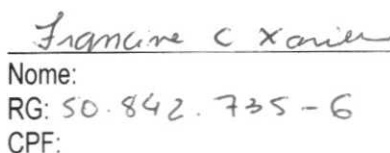 Francine C Xavier
Nome:
RG: 50.842.735-6
CPF: